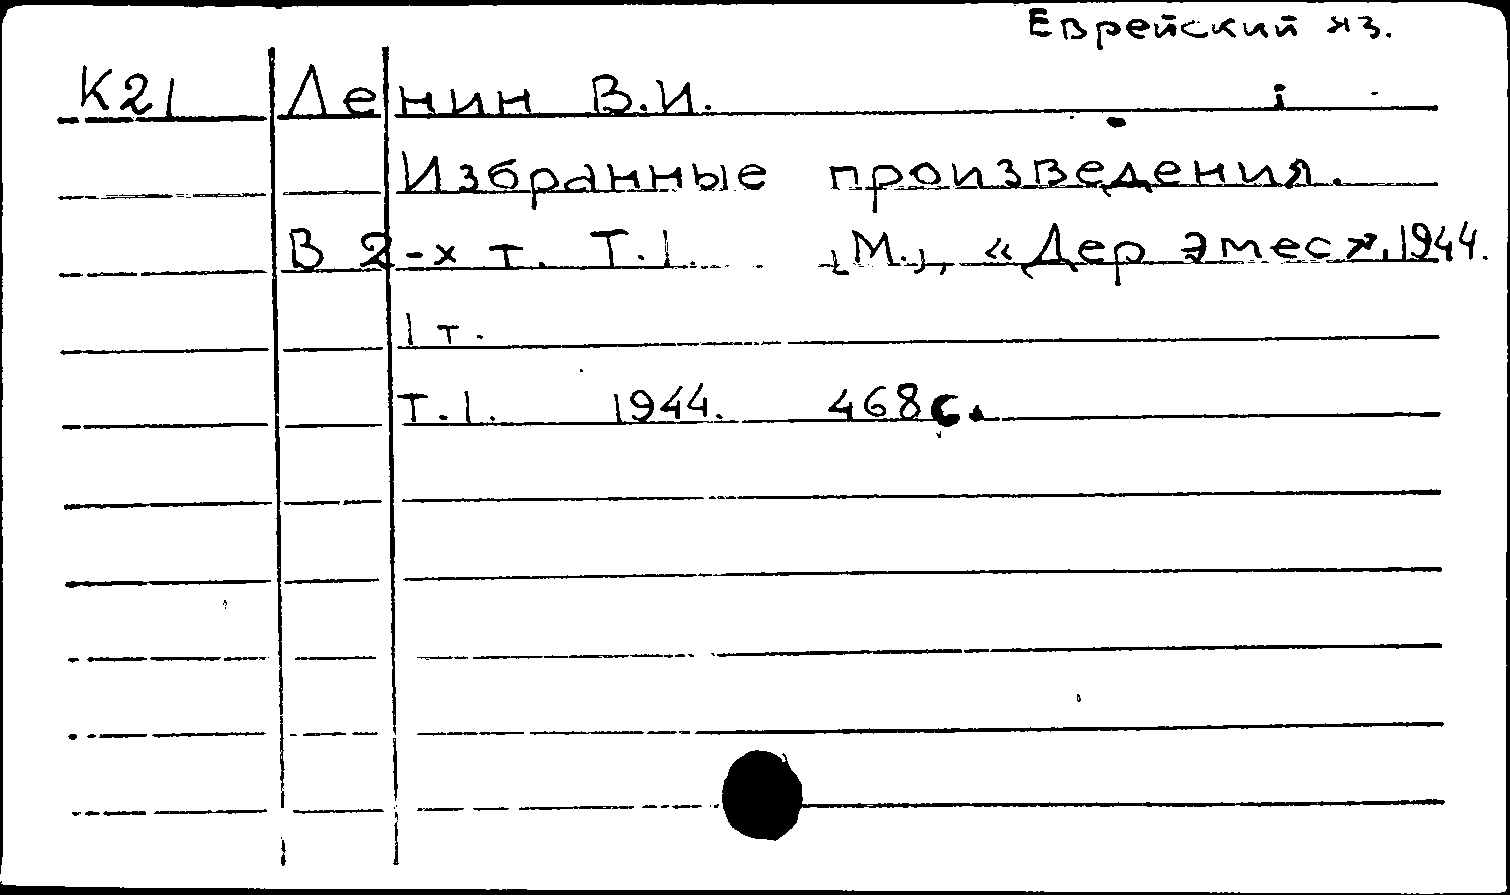 Еврейский яз.
К21 Ленин В.И.
Избранные произведения.
В 2-х т. Т.1. [М.], «Дер Эмес», 1944.
1 т.
Т.1. 1944. 468 с.